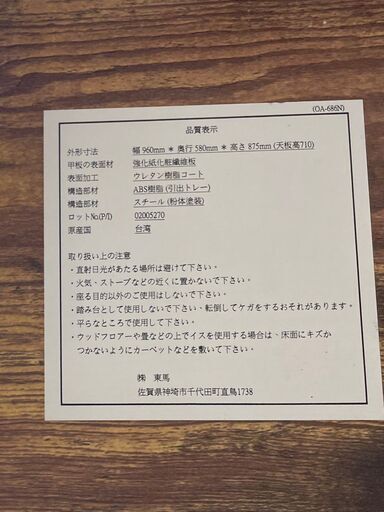 (OA-686N)
品質表示
外形寸法 幅 960mm ＊ 奥行 580mm ＊ 高さ 875mm (天板高710)
甲板の表面材 強化紙化粧繊維板
表面加工 ウレタン樹脂コート
構造部材 ABS樹脂 (引出トレー)
構造部材 スチール (粉体塗装)
ロットNo.(P/I) 02005270
原産国 台湾
取り扱い上の注意
・直射日光があたる場所は避けて下さい。
・火気、ストーブなどの近くに置かないで下さい。
・座る目的以外のご使用はしないで下さい。
・踏み台として使用しないで下さい、転倒してケガをするおそれがあります。
・平らなところで使用して下さい。
・ウッドフロアーや畳などの上でイスを使用する場合は、床面にキズか
つかないようにカーペットなどを敷いて下さい。
㈱ 東馬
佐賀県神埼市千代田町直鳥1738